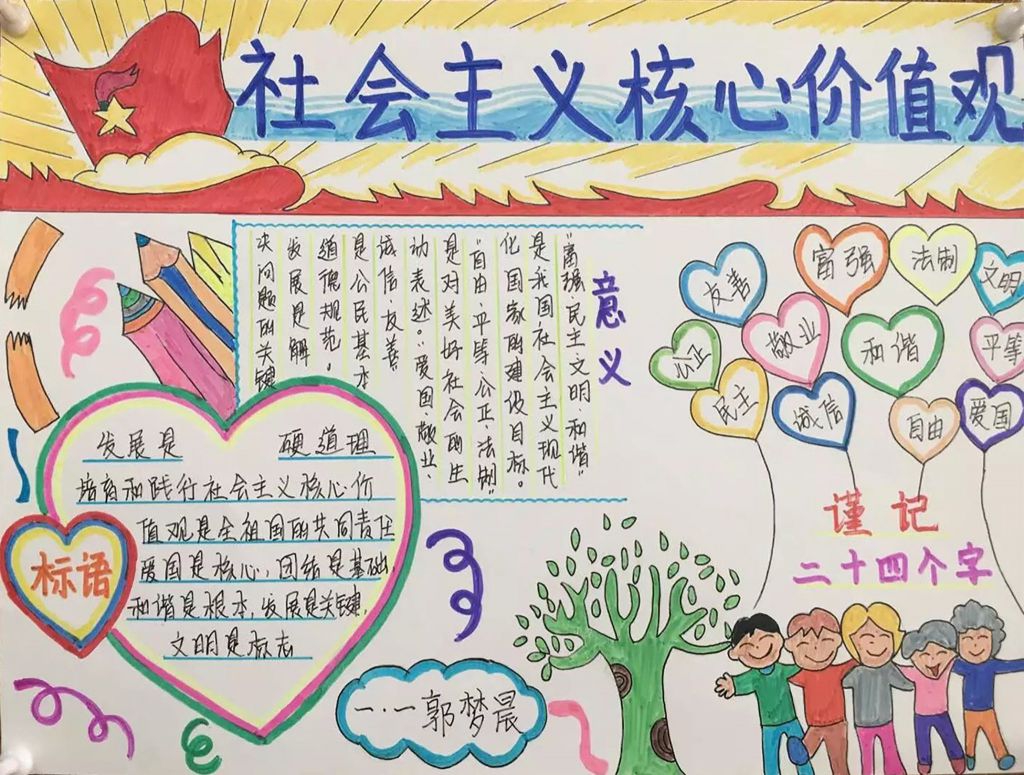 社会主义核心价值观
意义
“富强·民主·文明·和谐”
是我国社会主义现代
化国家的建设目标。
“自由·平等·公正·法制”
是对美好社会的生
动表述。”爱国·敬业·
诚信·友善”
是公民基本
道德规范。
发展是解
决问题的关键
发展是 硬道理
培育和践行社会主义核心价
值观是全祖国的共同责任
爱国是核心，团结是基础，
和谐是根本，发展是关键，
文明是标志
标语
友善
富强
法制
文明
公正
敬业
和谐
平等
民主
诚信
自由
爱国
谨记
二十四个字
一·一郭梦晨